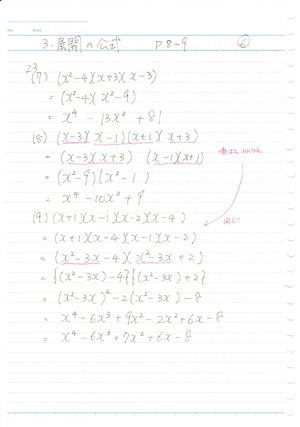 3. 展開の公式 P8~9 ⑥
23
(7) (x²-4)(x+3)(x-3)
= (x²-4)(x²-9)
= x⁴ - 13x² + 81
(8) (x-3)(x-1)(x+1)(x+3)
= (x-3)(x+3) (x-1)(x+1)
= (x²-9)(x²-1)
= x⁴-10x²+9
(9) (x+1)(x-1)(x-2)(x-4)
同じ
= (x+1)(x-4)(x-1)(x-2)
= (x²-3x-4)(x²-3x+2)
= {(x²-3x)-4}{(x²-3x)+2}
= (x²-3x)²-2(x²-3x)-8
= x⁴-6x³+9x²-2x²+6x-8
= x⁴-6x³+7x²+6x-8